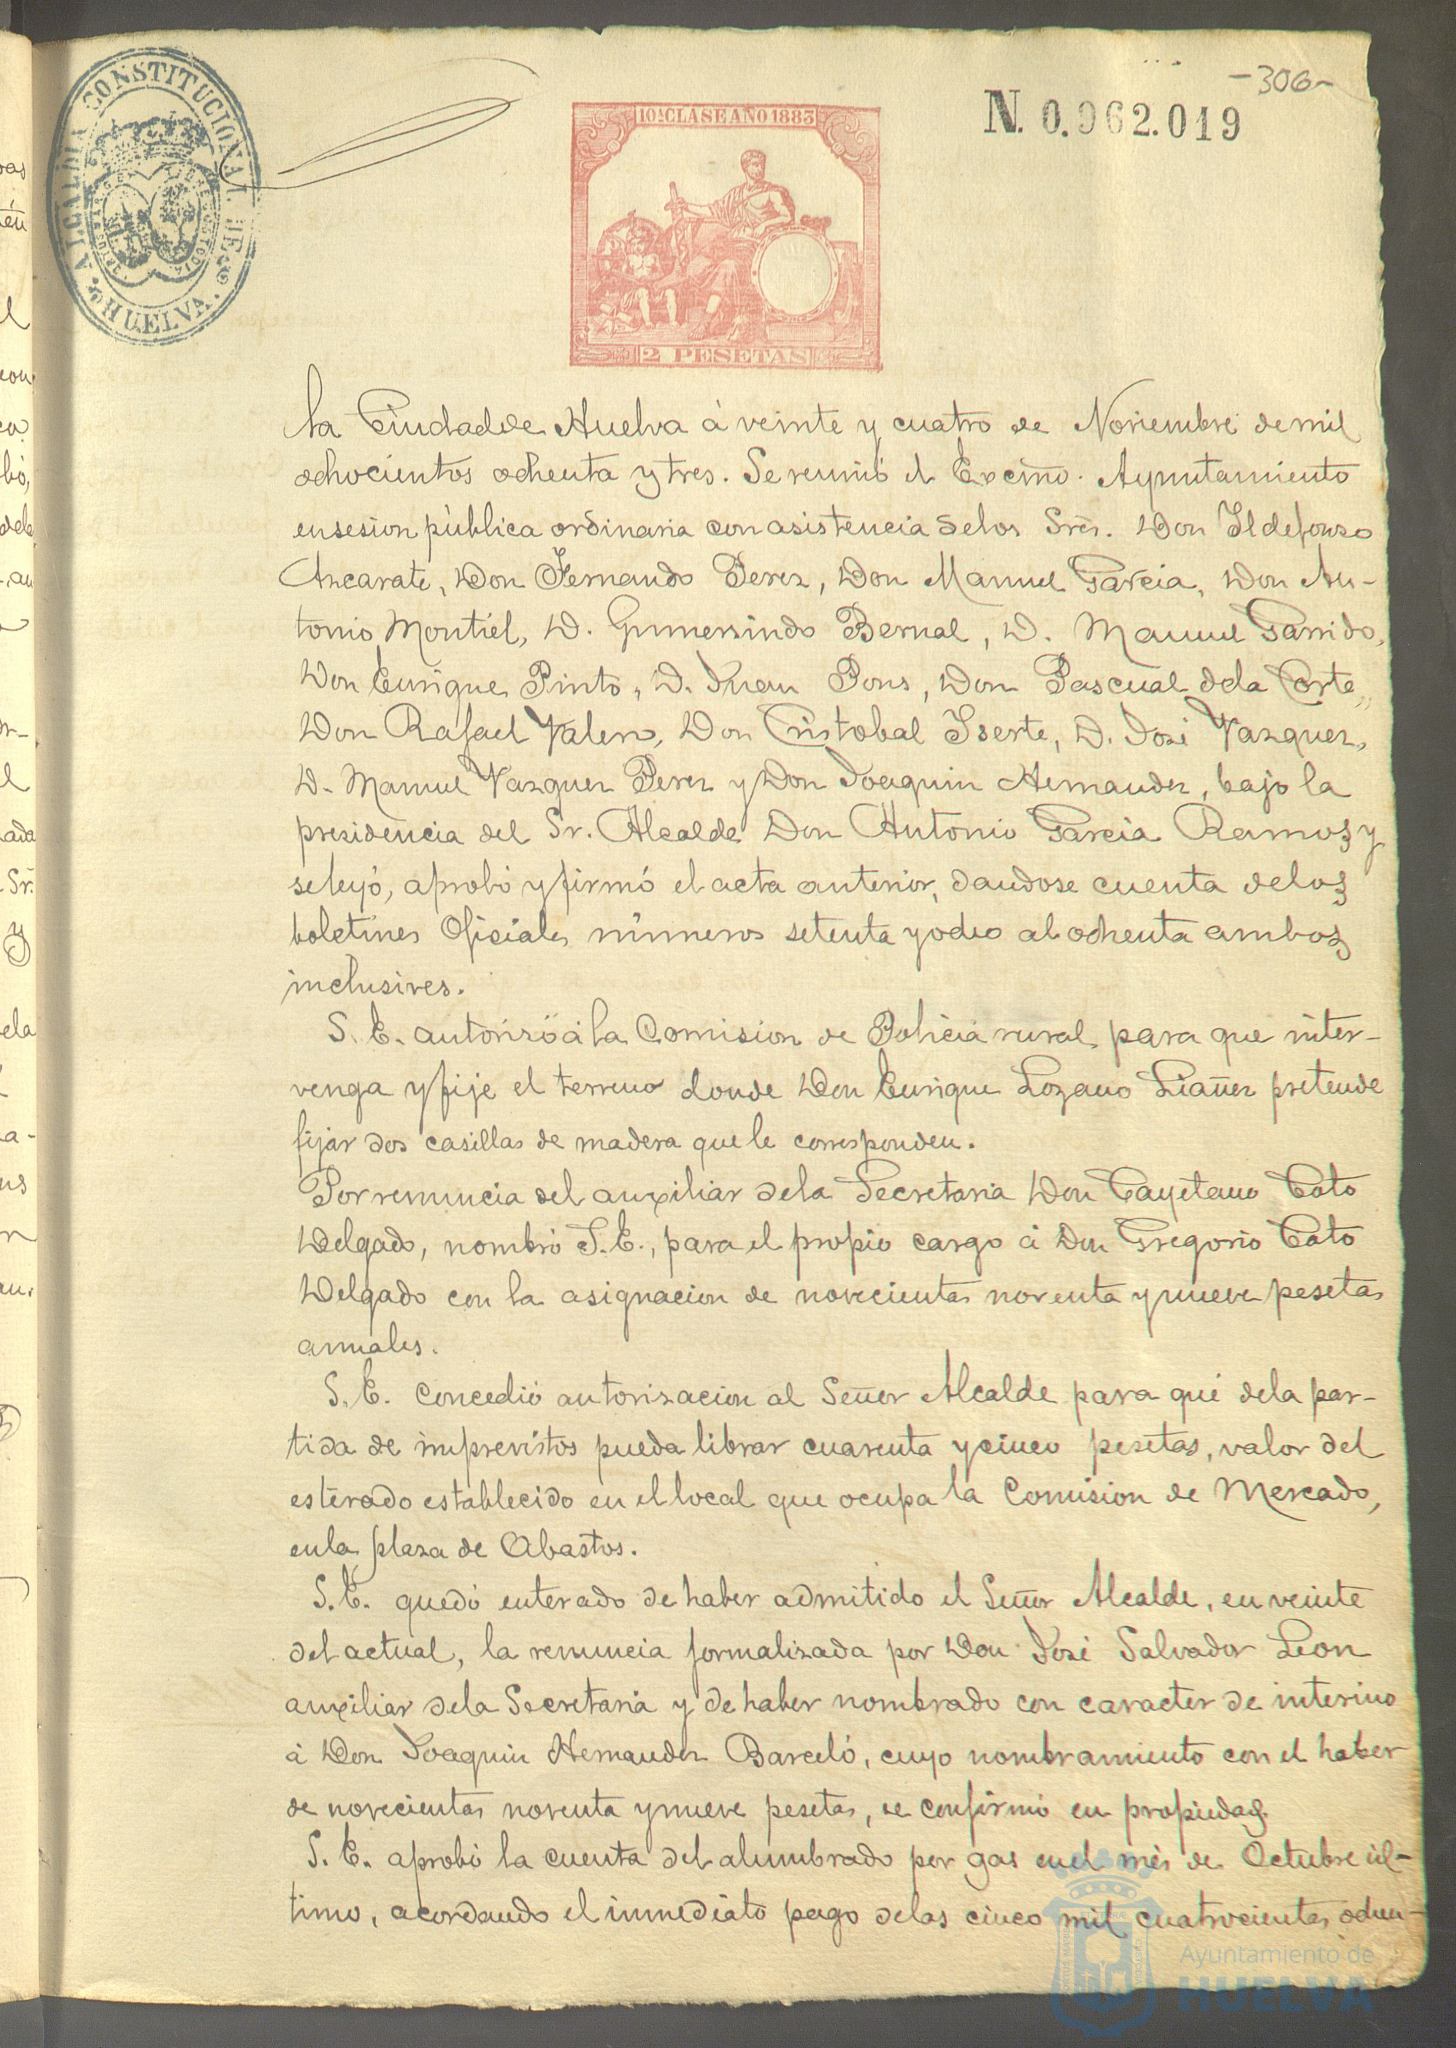 -306-
ALCALDIA CONSTITUCIONAL DE
HUELVA.
10ª CLASE AÑO 1883
N. 0.962.019
2 PESETAS
la Ciudad de Huelva á veinte y cuatro de Noviembre de mil
ochocientos ochenta y tres. Se reunió el Excmo. Ayuntamiento
en sesion pública ordinaria con asistencia de los Sres. Don Ildefonso
Azcarate, Don Fernando Perez, Don Manuel Garcia, Don An-
tonio Montiel, D. Gumersindo Bernal, D. Manuel Garrido,
Don Enrique Pinto, D. Juan Pons, Don Pascual de la Corte,
Don Rafael Valen, Don Cristobal Iserte, D. José Vazquez,
D. Manuel Vazquez Perez y Don Joaquin Hernandez, bajo la
presidencia del Sr. Alcalde Don Antonio Garcia Ramos y
se leyó, aprobó y firmó el acta anterior, dandose cuenta de los
boletines Oficiales números setenta y ocho al ochenta ambos
inclusives.
S. E. autorizó á la Comision de Policia rural para que inter-
venga y fije el terreno donde Don Enrique Lozano Liañez pretende
fijar dos casillas de madera que le corresponden.
Por renuncia del auxiliar de la Secretaria Don Cayetano Cato
Delgado, nombró S. E., para el propio cargo á Don Gregorio Cato
Delgado con la asignacion de novecientas noventa y nueve pesetas
anuales.
S. E. concedió autorizacion al Señor Alcalde para qué de la par-
tida de imprevistos pueda librar cuarenta y cinco pesetas, valor del
esterado establecido en el local que ocupa la Comision de Mercado,
en la plaza de Abastos.
S. E. quedó enterado de haber admitido el Señor Alcalde, en veinte
del actual, la renuncia formalizada por Don José Salvador Leon
auxiliar de la Secretaria y de haber nombrado con caracter de interino
á Don Joaquin Hernandez Barceló, cuyo nombramiento con el haber
de novecientas noventa y nueve pesetas, se confirmó en propiedad.
S. E. aprobó la cuenta del alumbrado por gas en el més de Octubre úl-
timo, acordando el inmediato pago de las cinco mil cuatrocientas ochen-
Ayuntamiento de
HUELVA